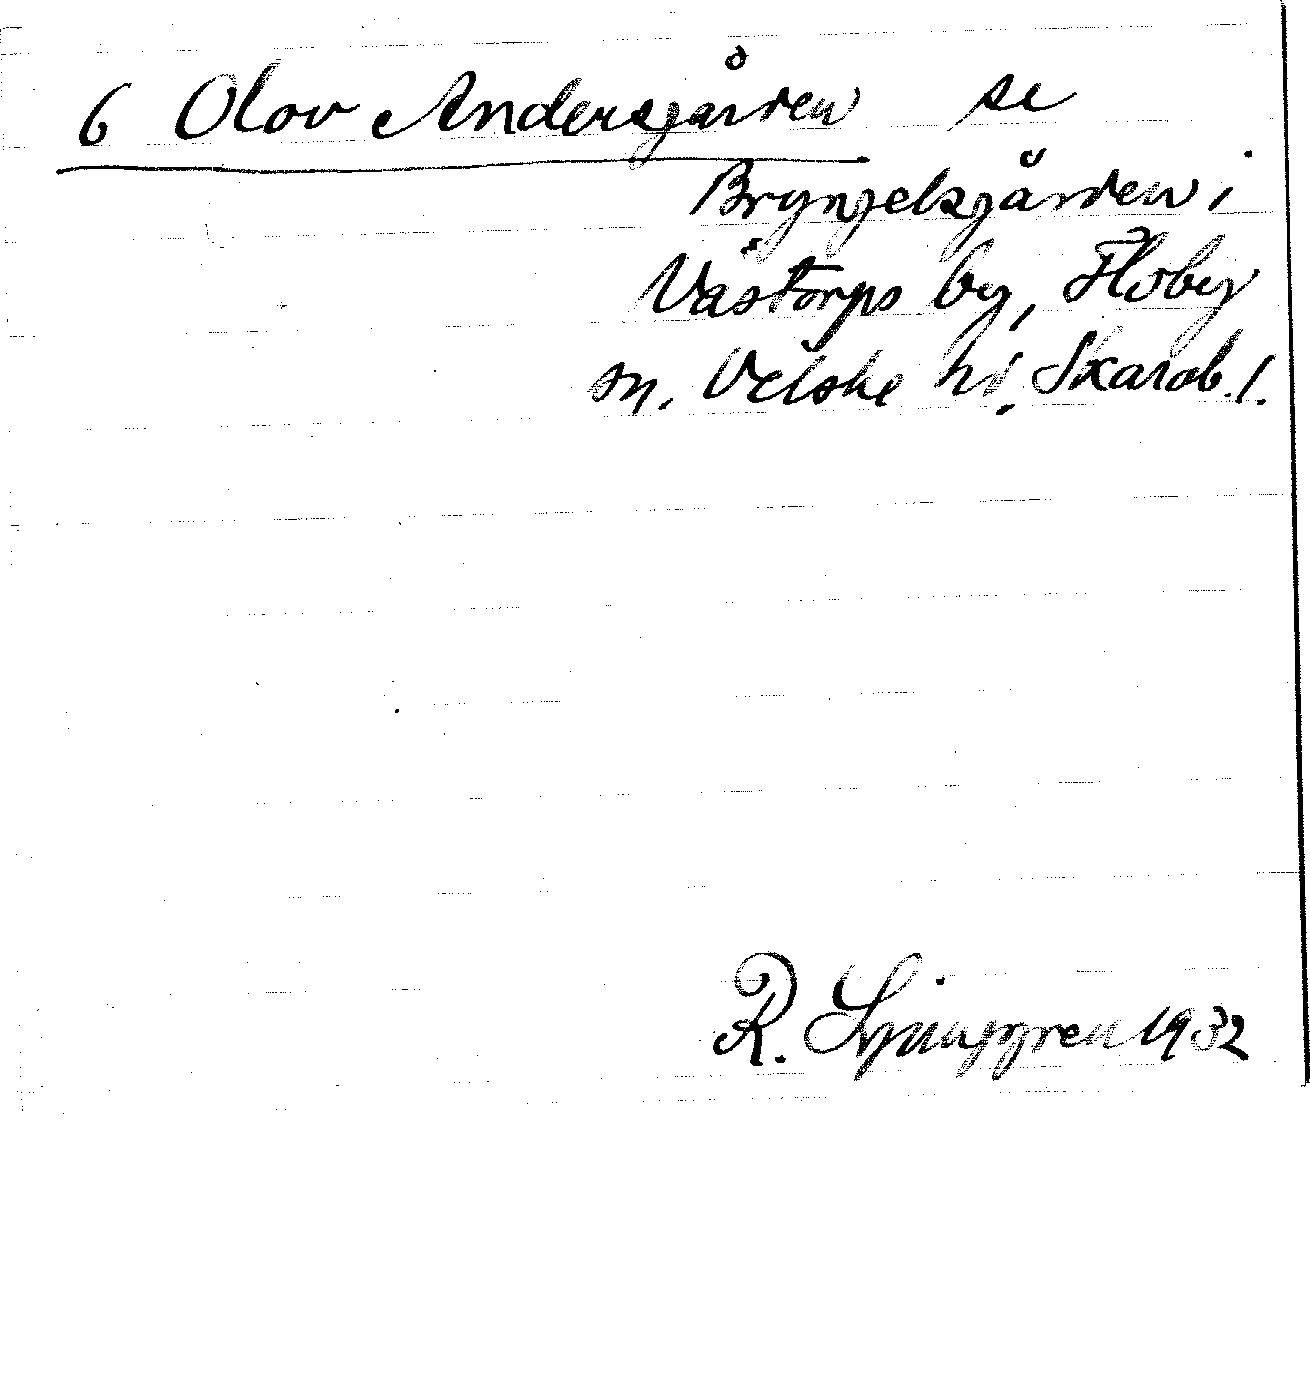 6 Olov Andersgården se
Bryngelsgården i
Västorps by, Floby
sn. Vilske hd. Skarab. l.
R. Ljunggren 1932